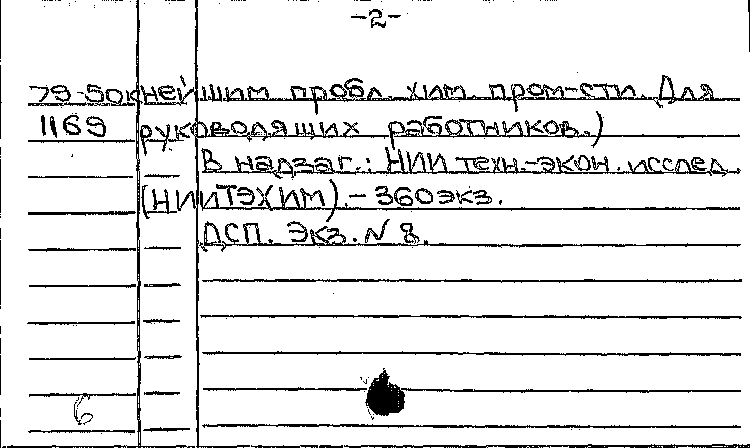 -2-
79-50к нейшим пробл. хим. пром-сти. Для
1169 руководящих работников.)
В надзаг.: НИИ техн.-экон. исслед.
(НИИТЭХИМ).-360экз.
ДСП. Экз. № 8.
6